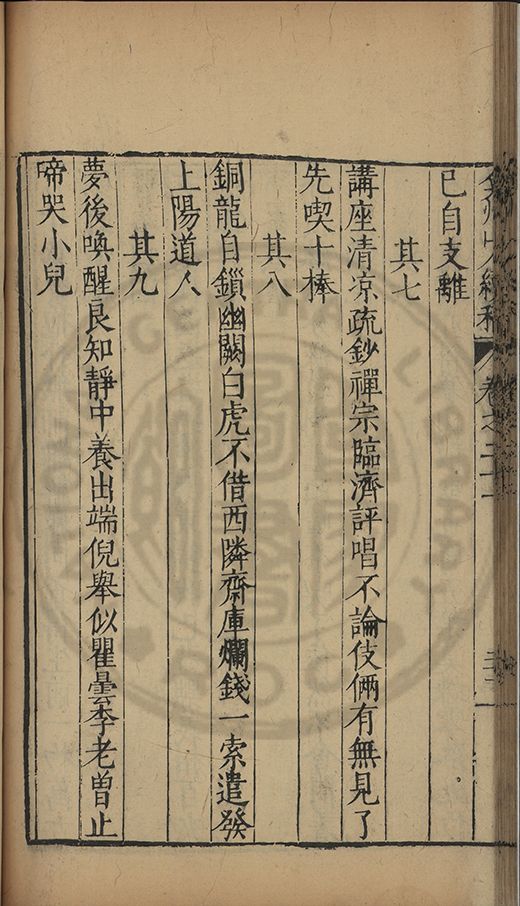 山人續稿 卷之二十
已自支離
其七
講座清凉疏鈔禪宗臨濟評唱不論伎倆有無見了
先喫十棒
其八
銅龍自鎖幽闕白虎不借西隣齋庫爛錢一索遣發
上陽道人
其九
夢後喚醒良知靜中養出端倪舉似瞿曇李老曾止
啼哭小兒